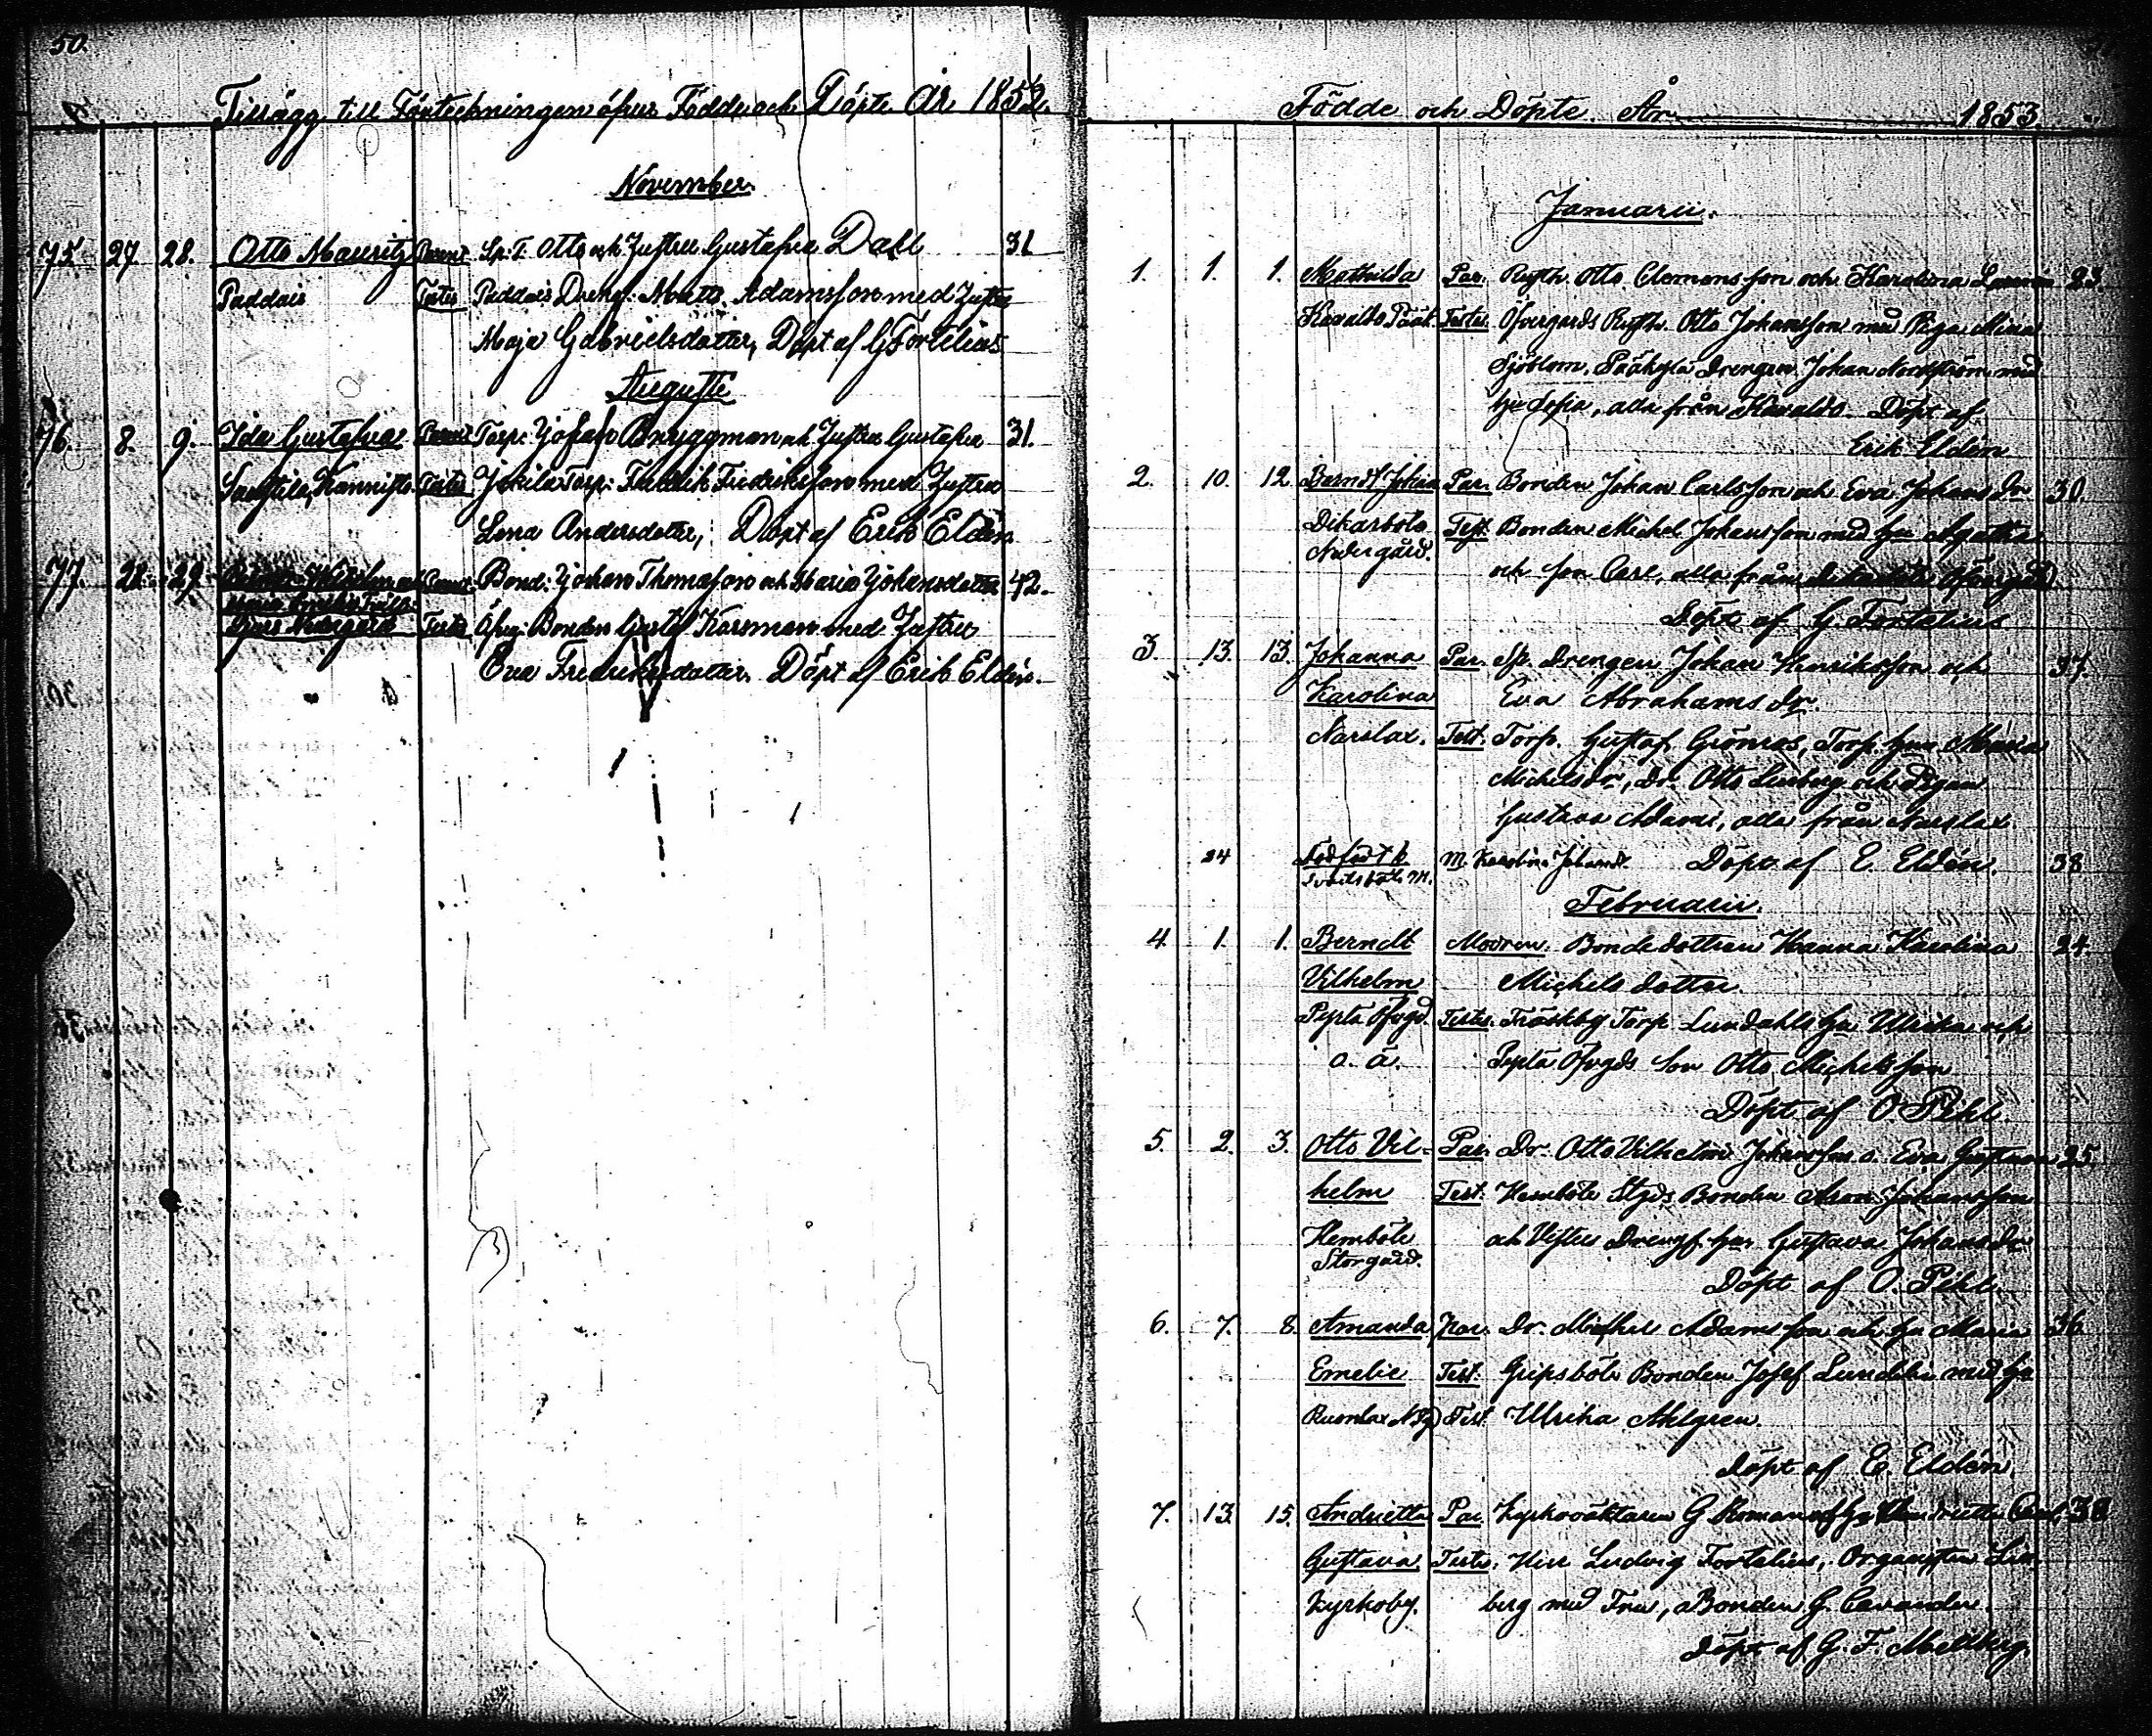 50.
Tillägg till Förteckningen öfver Födde och Döpte År 1852.
November.
75. 27 28. Otto Mauritz Sp. T. Otto och Hustru Gustafva Dahl 31
Paddais Testes Paddais Drengen Matts Adamsson med Hustru
Maja Gabrielsdotter, Döpt af G Fortelius
Augusti
76. 8. 9. Ida Gustafva Torp: Johan Bryggman och Hustru Gustafva 31.
Testes Jokila Torp: Fredrik Fredriksson med Hustru
Lena Andersdotter, Döpt af Erik Eldén
77. 28. 29. Bond: Johan Thomasson och Maria Johansdotter 42.
Nedergård Testes Öfvg: Bonden Gustaf Karsman med Hustru
Eva Fredriksdotter. Döpt af Erik Eldén.
Födde och Döpte År 1853.
Januarii.
1. 1. 1. Mathilda Par. Rusth. Otto Clemensson och Karolina 23.
Testes Öfvergårds Rusth. Otto Johansson med Piga Mina
Sjöblom, Pääkylä Drengen Johan Nordström med
Hu Sofia, alla från Kavalto. Döpt af
Erik Eldén
2. 10. 12. Berndt Johan Par. Bonden Johan Carlsson och Eva Johans dr 30.
Dikarböle Test. Bonden Michel Johansson med Hu Agatha
Nedergård. och son Carl, alla från Dikarböle Öfvergård.
Döpt af G. Fortelius
3. 13. 13. Johanna Par. Sp. Drengen Johan Henriksson och 37.
Karolina Eva Abrahams dr.
Narslax. Test. Torp. Gustaf Grönroos, Torp. Hu Maria
Michelsdr, Dr. Otto och Pigan
Gustava Adams, alla från Narslax
24 Dödfödt b. M. Karolina Johansdr. Döpt af E. Eldén. 38
Februarii.
4. 1. 1. Berndt Modren. Bondedottren Hanna Karolina 24.
Vilhelm Michels dotter.
Pyplä Öfvgd Testes. Träskby Torp. Lundahls Hu Ulrika och
o. ä. Pyplä Öfvgds Son Otto Michelsson
Döpt af O. Pihl.
5. 2. 3. Otto Vil- Par. Dr. Otto Vilhelm Johansson o. Eva Gustava 25.
helm Test. Hemböle Stgds Bonden Aron Johansson
Hemböle och Drengs Hu Gustava Johans dr
Storgård. Döpt af O. Pihl.
6. 7. 8. Amanda Par. Dr. Michel Adamsson och Hu Maria 36.
Emelie Test. Gripsböle Bonden Josef Lundelin med Hu
Test. Ulrika Ahlgren.
Döpt af E. Eldén.
7. 13. 15. Andrietta Par. Kyrkovaktaren G Roman 38
Gustava Testes. Herr Ludvig Fortelius, Organisten Lin-
Kyrkoby. berg med Fru, Bonden G. Cavander.
Döpt af G. F. Mellberg.